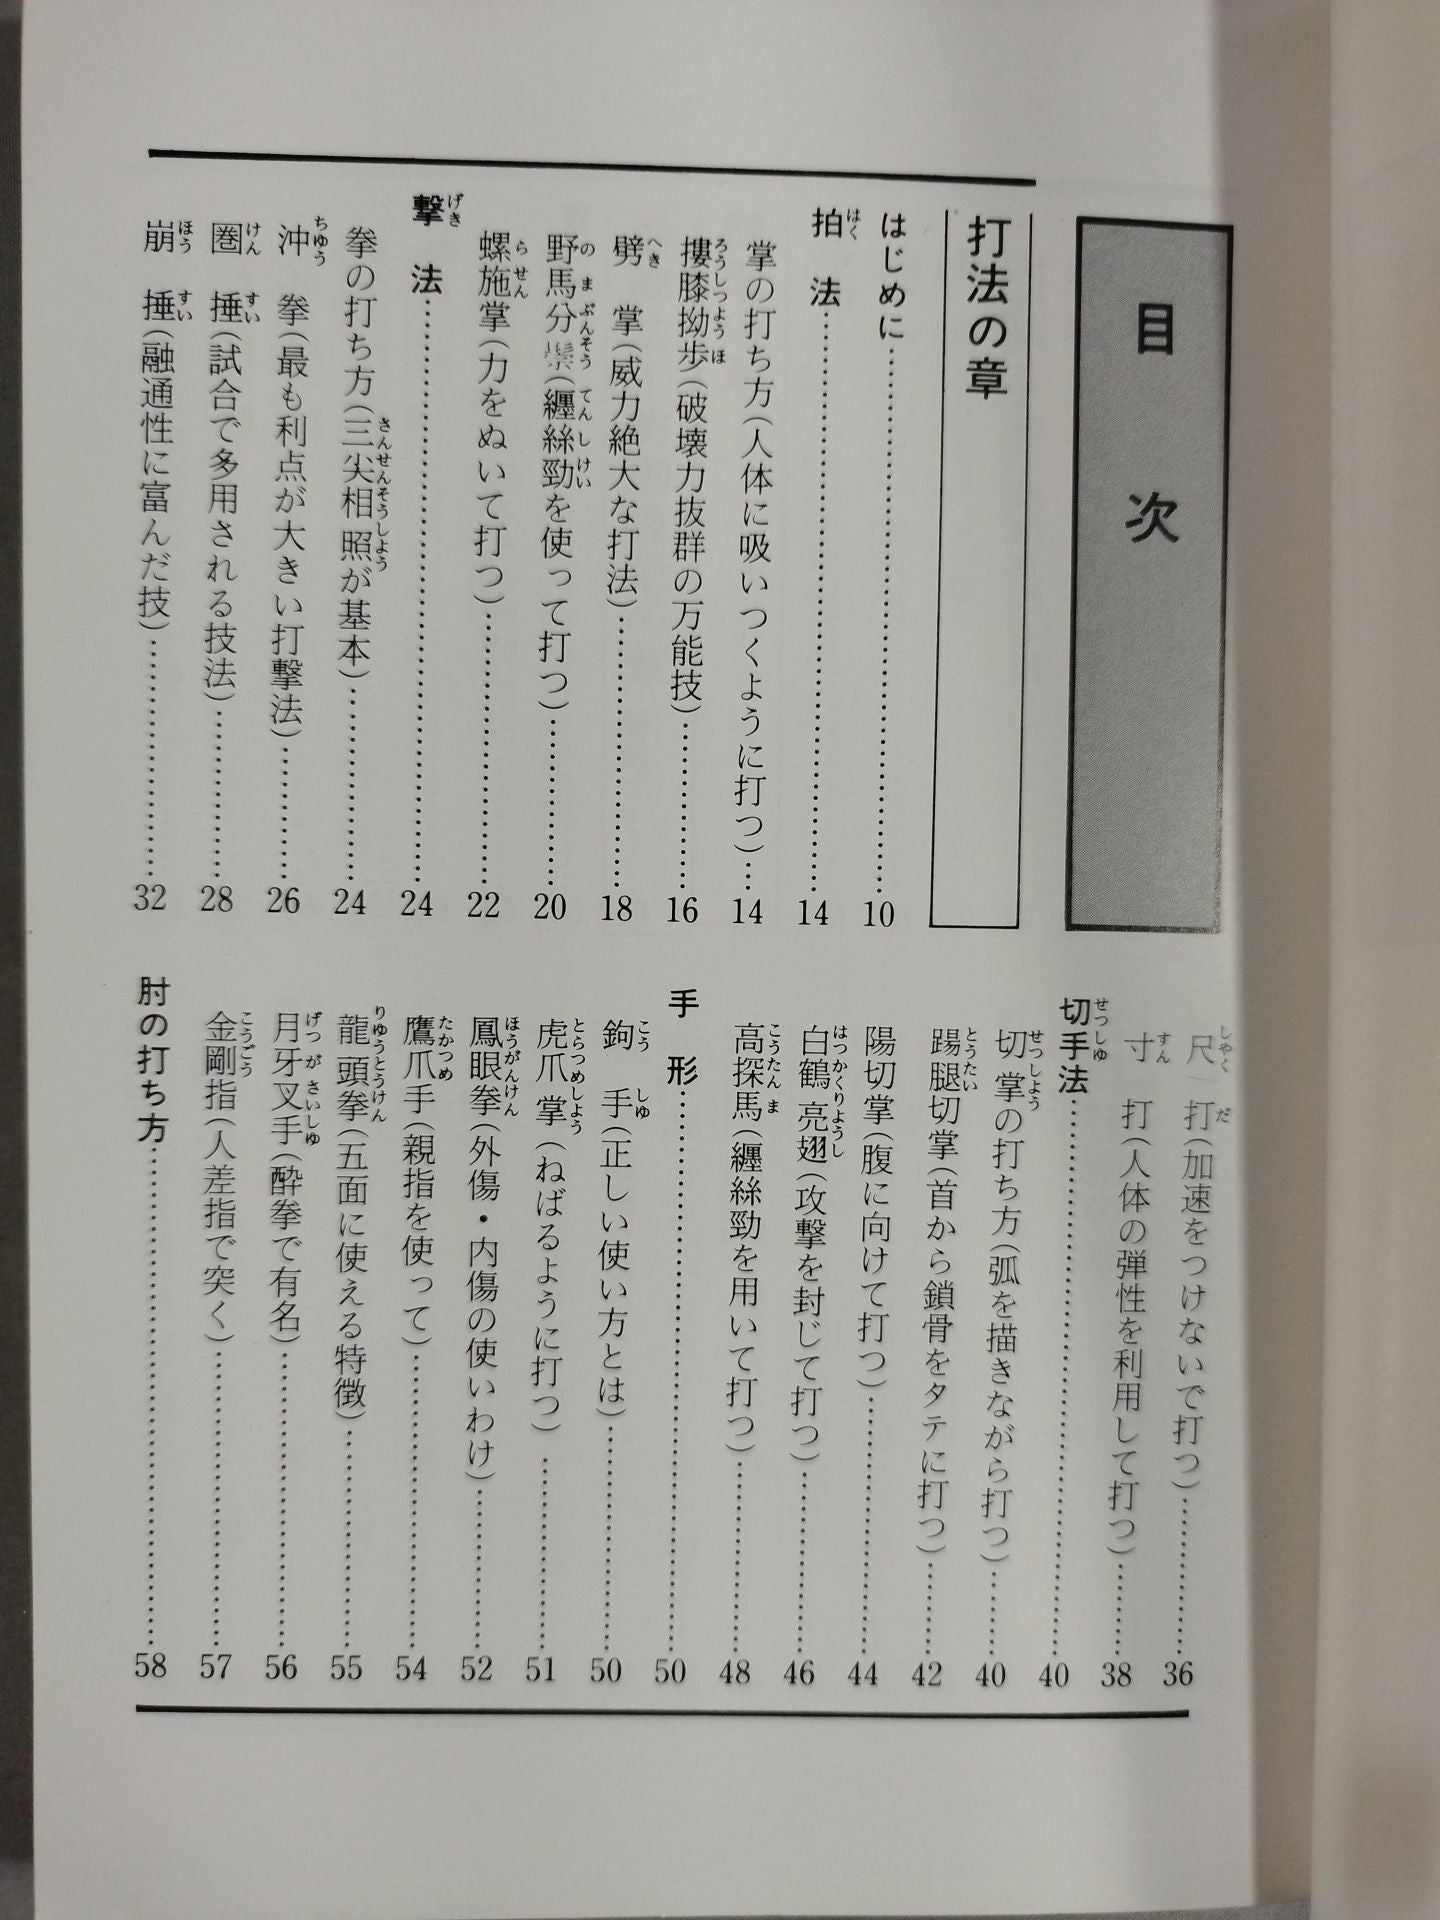 目次
打法の章
はじめに……10
拍法……14
掌の打ち方（人体に吸いつくように打つ）…14
摟膝拗歩（破壊力抜群の万能技）……16
劈掌（威力絶大な打法）……18
野馬分鬃（纏絲勁を使って打つ）……20
螺施掌（力をぬいて打つ）……22
撃法……24
拳の打ち方（三尖相照が基本）……24
沖拳（最も利点が大きい打撃法）……26
圏捶（試合で多用される技法）……28
崩捶（融通性に富んだ技）……32
尺打（加速をつけないで打つ）……36
寸打（人体の弾性を利用して打つ）……38
切手法……40
切掌の打ち方（弧を描きながら打つ）……40
踢腿切掌（首から鎖骨をタテに打つ）……42
陽切掌（腹に向けて打つ）……44
白鶴亮翅（攻撃を封じて打つ）……46
高探馬（纏絲勁を用いて打つ）……48
手形……50
鉤手（正しい使い方とは）……50
虎爪掌（ねばるように打つ）……51
鳳眼拳（外傷・内傷の使いわけ）……52
鷹爪手（親指を使って）……54
龍頭拳（五面に使える特徴）……55
月牙叉手（酔拳で有名）……56
金剛指（人差指で突く）……57
肘の打ち方……58